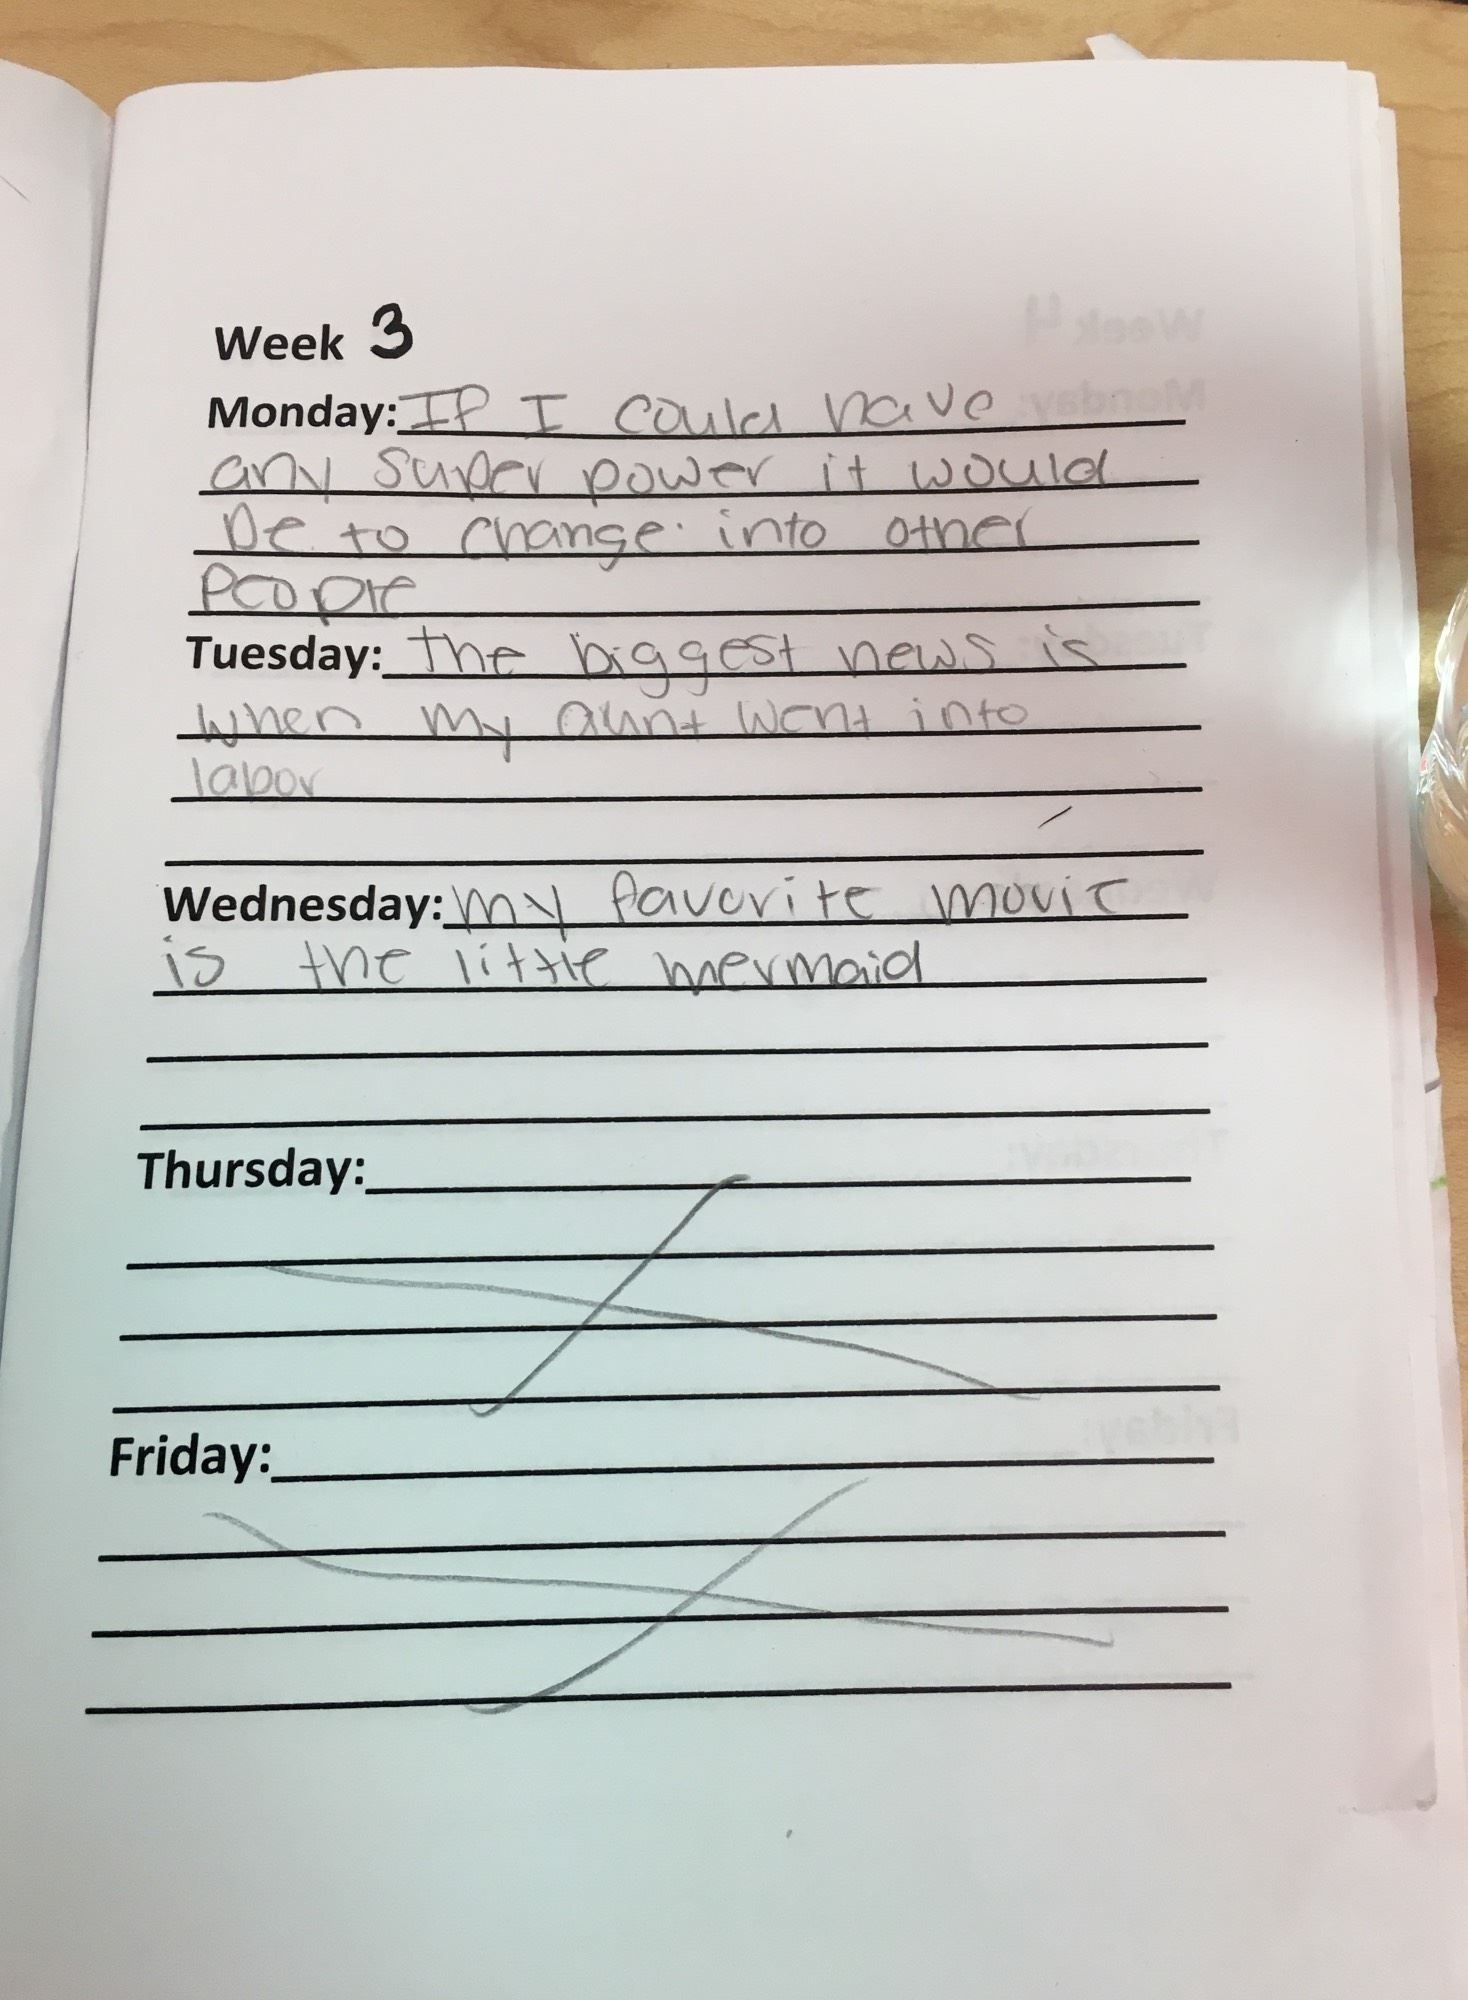 Week 3
Monday: If I could have
any super power it would
be to change into other
people
Tuesday: the biggest news is
when my aunt went into
labor
Wednesday: my favorite movie
is the little mermaid
Thursday:
Friday: